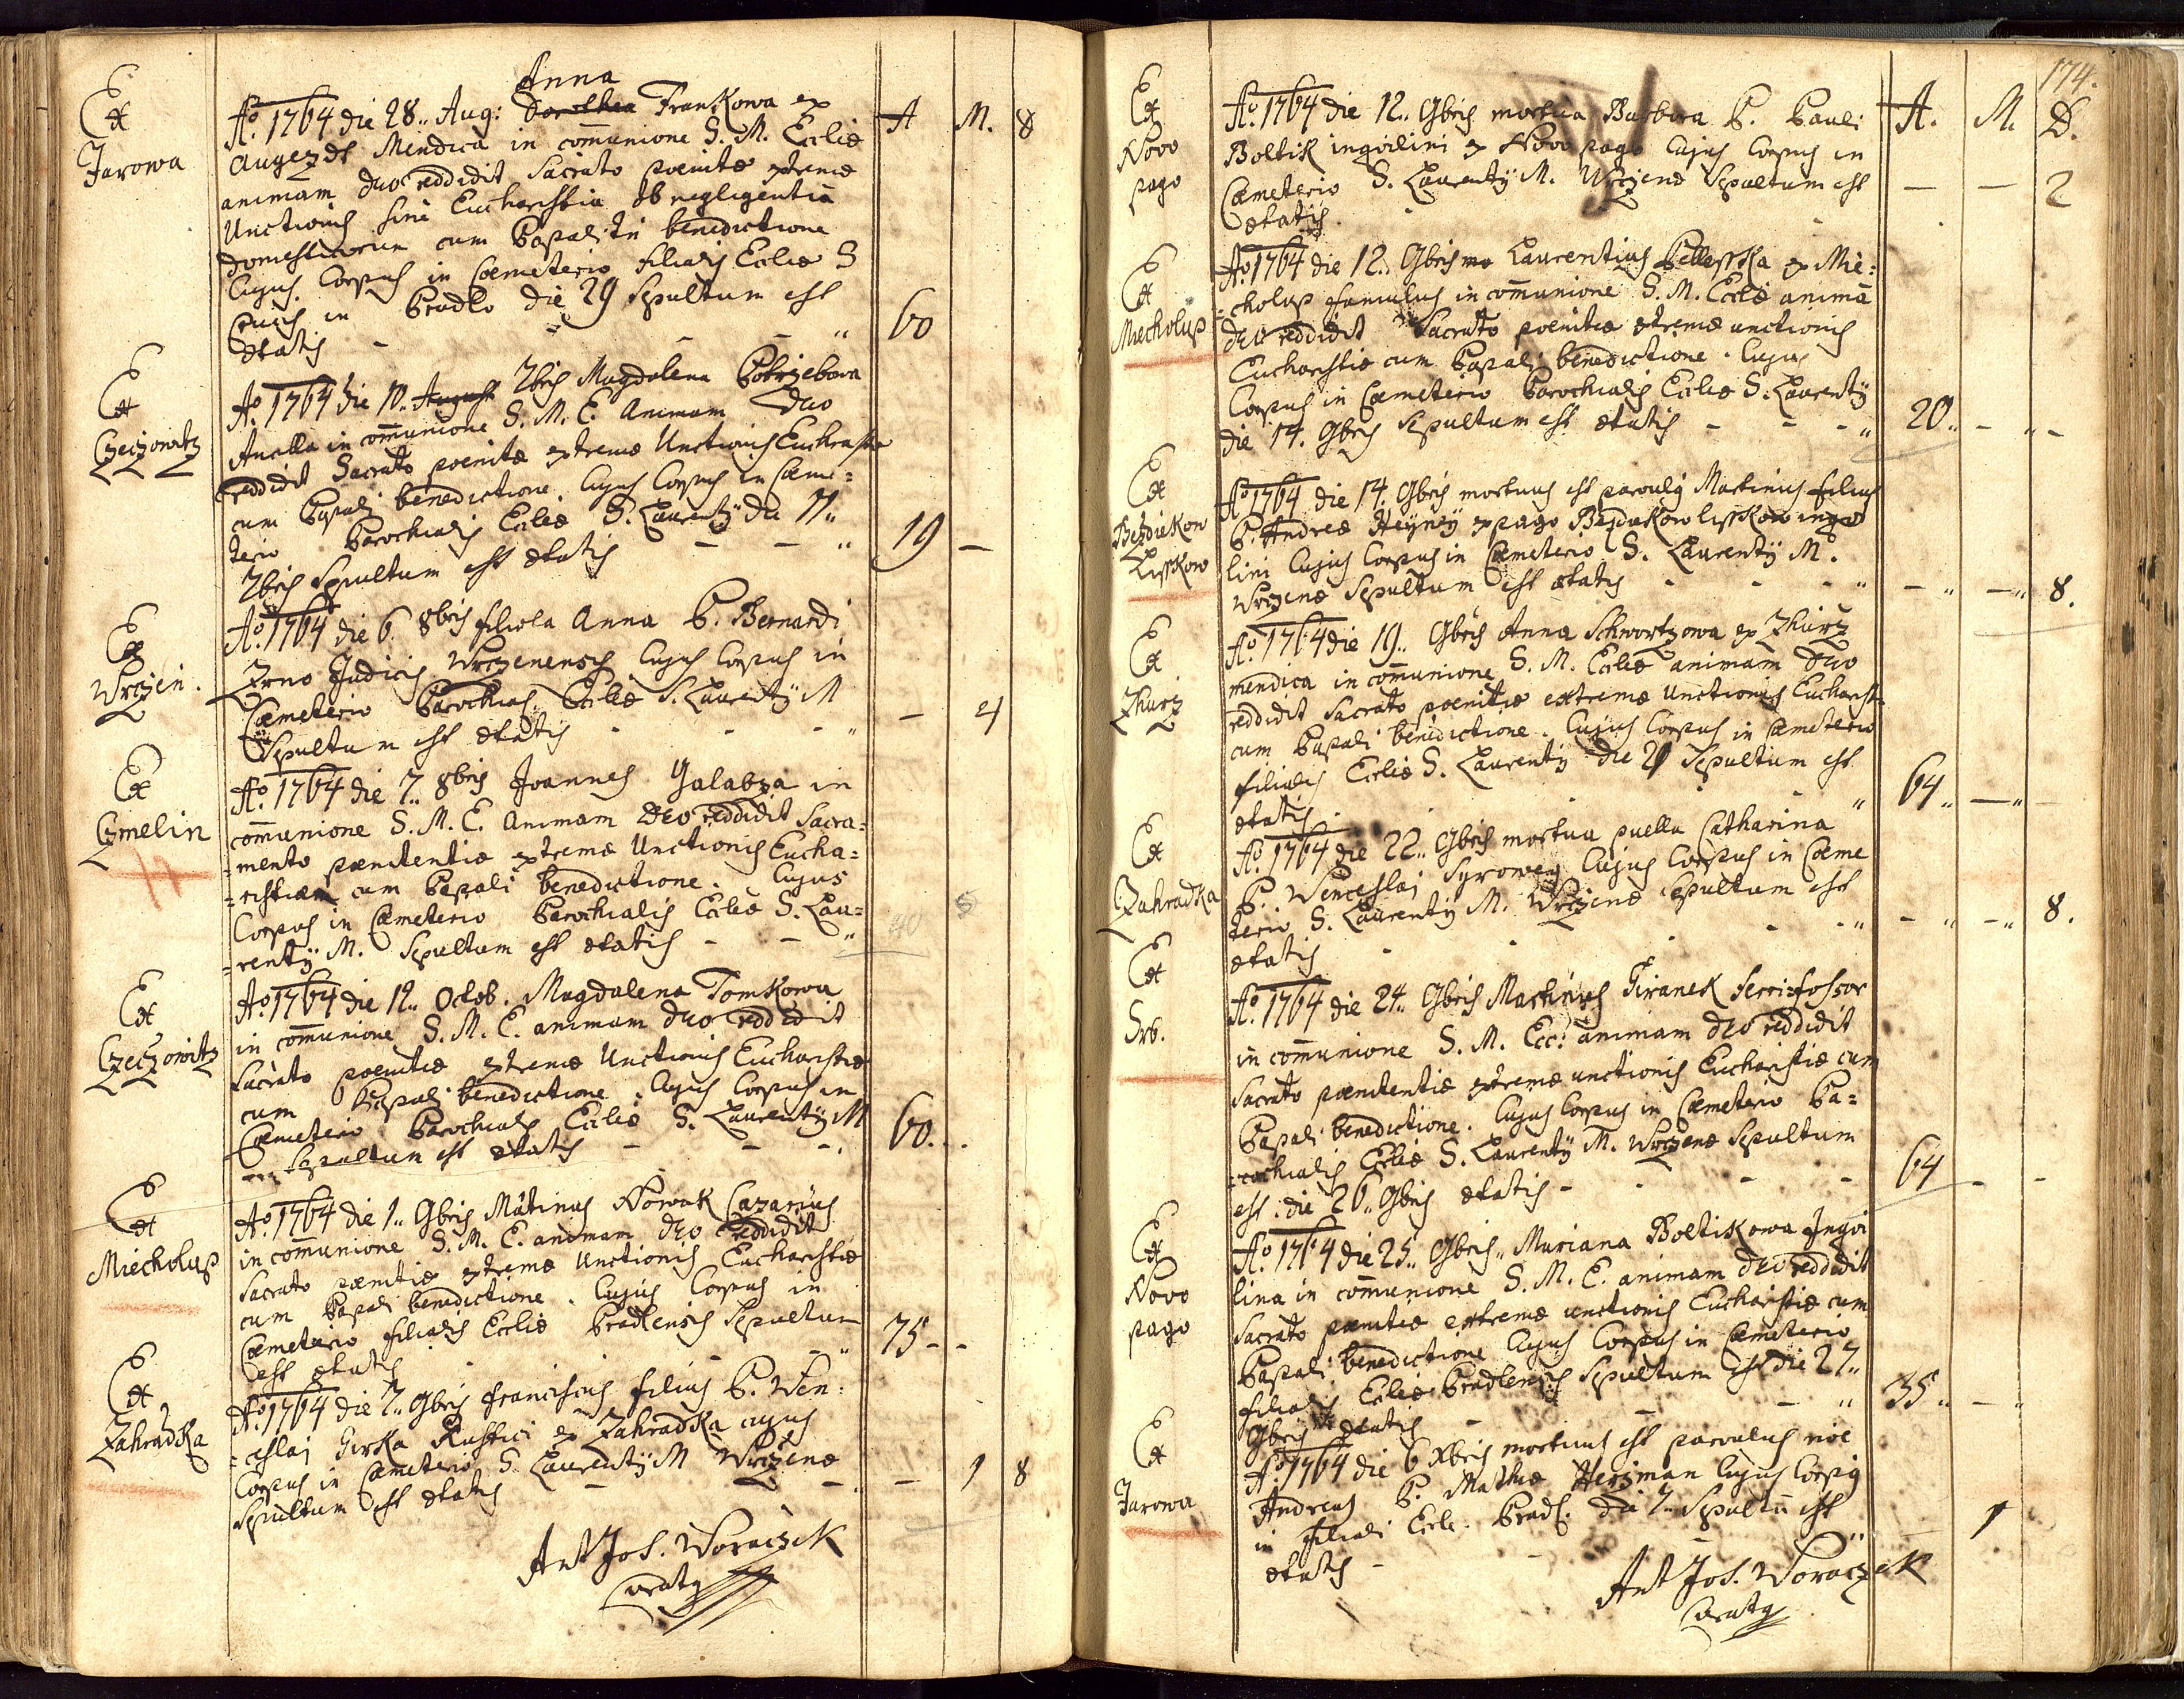 Anna
Ex
Jarowa
Aº. 1764 die 28.. Aug: Dorothea Frankowa ex
Augezdt Mendica in com̄unione S. M. Eccliæ
animam deo reddidit Sacrato poenitæ extremæ
Unctionis sine Eucharistia ob negligentiā
domesticorum cum Papali benedictione
Cujus Corpus in Coemeterio filialis Eccliæ S
Crucis in Pradlo die 29 Sepultum est
ætatis - - - " 60
A M. 8
Ex
Czeczowitz
Aº. 1764 die 10.. August 7bris Magdalena Pobrzebowa
Ancilla in com̄unione S. M. E. Animam Deo
reddidit Sacrato poenitæ extremæ Unctionis Euchrastiæ
cum Papali benedictione. Cujus Corpus in Cæme=
terio Parochialis Eccliæ S. Laurentÿ die 11..
7bris Sepultum est ætatis - - " 19 -
Ex
Wrczen.
Aº. 1764 die 6. 8bris filiola Anna P. Bernardi
Zrno Judicis Wrczenensis Cujus Corpus in
Cæmeterio Parochial. Eccliæ S. Laurentÿ M
Sepultum est ætatis - - " - 4
Ex
Czmelin
Aº. 1764 die 7.. 8bris Joannes Galabza in
com̄unione S. M. E. Animam Deo reddidit Sacra=
=mento pænitentiæ extremæ Unctionis Eucha=
=ristiæ cum Papali benedictione. Cujus
Corpus in Cæmeterio Parochialis Eccliæ S. Lau=
=rentÿ M. Sepultum est ætatis - - " 40 5
Ex
Czeczowitz
Aº. 1764 die 12.. Octob. Magdalena Tomkowa
in com̄unione S. M. E. animam deo reddidit
Sacrato poenitæ extremæ Unctionis Eucharistiæ
cum Papali benedictione. Cujus Corpus in
Cæmeterio Parochialis Eccliæ S. Laurentÿ M
Sepultum est ætatis - - - 60.
Ex
Miecholup
Aº. 1764 die 1.. 9bris Mâtinus Nowak Cazarius
in com̄unione S. M. E. animam deo reddidit
Sacrato pænitiæ extremæ Unctionis Eucharistiæ
cum Papali benedictione. Cujus Corpus in
Cæmeterio filialis Eccliæ Pradlensis Sepultum
est ætatis - - - " 75 - -
Ex
Zahradka
Aº. 1764 die 7.. 9bris franciscus filius P. Wen=
=ceslai Girka Rustici ex Zahradka cujus
Corpus in Cæmeterio S. Laurentÿ M Wrczenæ
Sepultum est ætatis - - - - 1 8
Ant Jos. Woraczek
Curatg
174.
Ex
Novo
pago
Aº. 1764 die 12.. 9bris mortua Barbora P. Pauli
Boltik inqvilini ex Novo pago Cujus Corpus in
Cæmeterio S. Laurentÿ M. Wrczenæ Sepultum est
ætatis. - - 2
A. M. D.
Ex
Miecholup
Aº. 1764 die 12.. 9bris mo Laurentius Pellesska ex Mie=
=cholup famulus in com̄unione S. M. Eccliæ animā
deo reddidit Sacrato poenitiæ extremæ unctionis
Eucharistiæ cum Papali benedictione. Cujus
Corpus in Cæmeterio Parochialis Eccliæ S. Laurentÿ
die 14. 9bris Sepultum est ætatis - - - " 20.. - " -
Ex
Bezdiekow
Lisskow
Aº. 1764 die 14. 9bris mortuus est parvulg Martinus filius
P. Andreæ Heynÿ ex pago Bezdiekow lisskow inqvi
lini Cujus Corpus in Cæmeterio S. Laurentÿ M.
Wrczenæ Sepultum est ætatis - - - " - " - " 8.
Ex
Zhurz
Aº. 1764 die 19.. 9bris Anna Schwortzowa ex Zhurz
mendica in com̄unione S. M. Eccliæ animam deo
reddidit Sacrato poenitiæ extremæ Unctionis Eucharist
cum Papali benedictione. Cujus Corpus in Cæmeterio
filialis Eccliæ S. Laurentÿ die 21 Sepultum est
ætatis. - - " 64.. - "
Ex
Zahradka
Aº. 1764 die 22.. 9bris mortua puella Catharina
P. Wenceslai Syrowey Cujus Corpus in Cæme
terio S. Laurentÿ M. Wrczenæ Sepultum est
ætatis - - - " - " - " 8.
Ex
Srb.
Aº. 1764 die 24.. 9bris Martinus Giranek ferrifossor
in com̄unione S. M. Ecc: animam deo reddidit
Sacrato pænitentiæ extremæ unctionis Eucharistiæ cum
Papali benedictione. Cujus Corpus in Cæmeterio Pa=
=rochialis Eccliæ S. Laurentÿ M. Wrczenæ Sepultum
est. die 26.. 9bris ætatis - - - 64 - -
Ex
Novo
pago
Aº. 1764 die 25.. 9bris.. Mariana Boltikowa Inqvi
lina in com̄unione S. M. E. animam deo reddidit
Sacrato pænitiæ extremæ unctionis Eucharistiæ cum
Papali benedictione Cujus Corpus in Cæmeterio
filialis Eccliæ Pradlensis Sepultum est die 27..
9bris ætatis - - - " 35.. - "
Ex
Jarowa
Aº. 1764 die 6 Xbris mortuus est parvulus nōe
Andreas P. Mathiæ Herzman Cujus Corpg
in filiali Eccle. Pradl. die 7.. Sepultū est
ætatis - - " 1
Ant Jos. Woraczek
Curatg